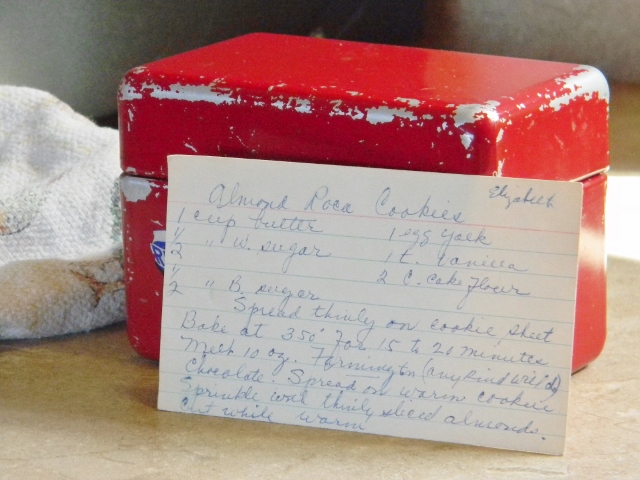 Elizabeth
Almond Roca Cookies
1 cup butter 1 egg yolk
1/2 " w. sugar 1 t. vanilla
1/2 " B. sugar 2 C. cake flour
Spread thinly on cookie sheet
Bake at 350° for 15 to 20 minutes
Melt 10 oz. (any kind will do)
Chocolate. Spread on warm cookie
Sprinkle with thinly sliced almonds.
Cut while warm